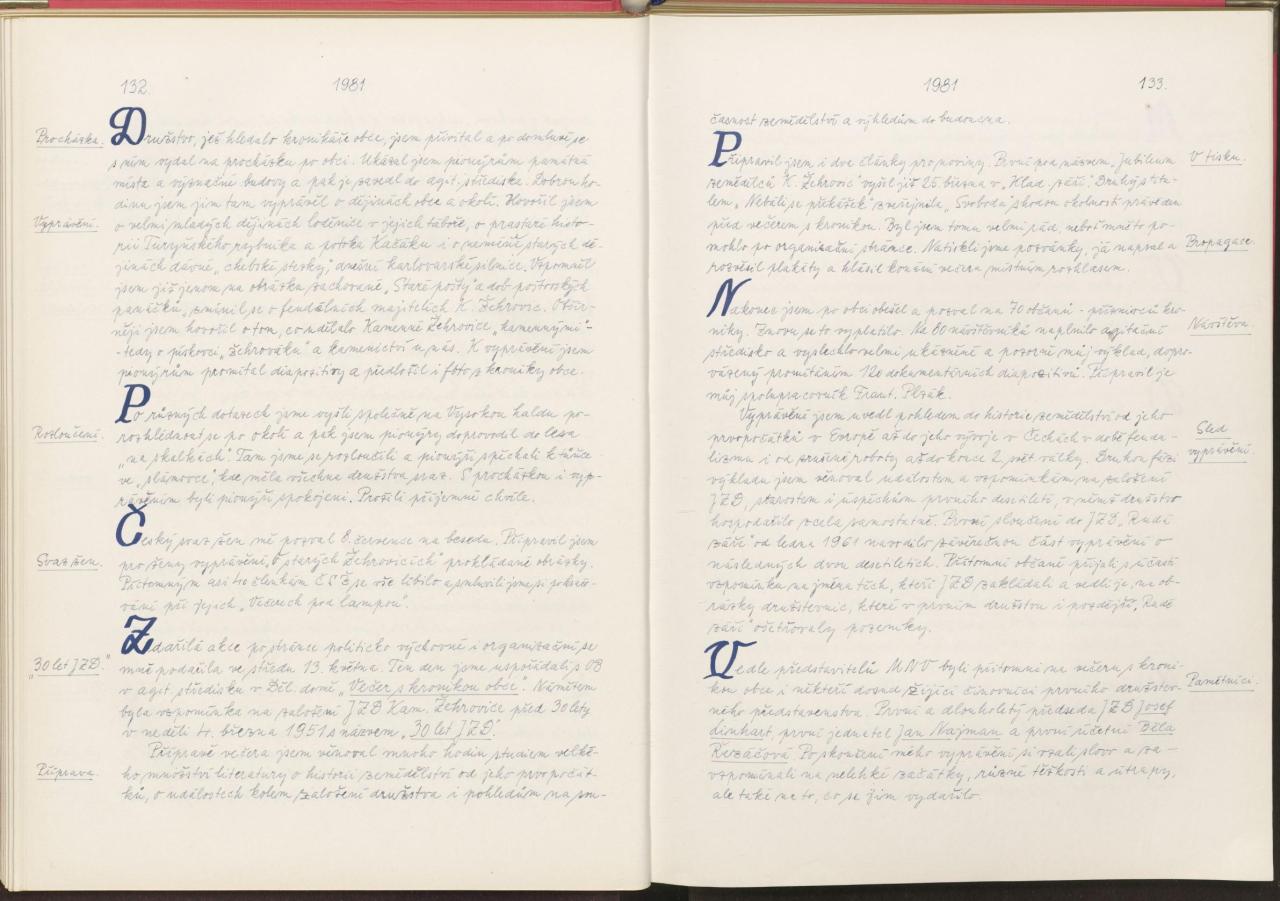 132.
1981
Procházka.
Družstvo, jež hledalo kronikáře obce, jsem přivítal a po domluvě se
s ním vydal na procházku po obci. Ukázal jsem pionýrům památná
místa a význačné budovy a pak je zavedl do agit. střediska. Dobrou ho-
dinu jsem jim tam vyprávěl o dějinách obce a okolí. Hovořil jsem
Vyprávění.
o velmi mladých dějinách loděnice v jejich táboře, o prastaré histo-
rii Turyňského rybníka a potoka Kačáku i o neméně starých dě-
jinách dávné „chebské stezky," dnešní karlovarské silnice. Vzpomněl
jsem již jenom na obrázku zachované „Staré pošty" a dob poštovských
panáčků, zmínil se o feudálních majitelích K. Žehrovic. Obšír-
něji jsem hovořil o tom, co dělalo Kamenné Žehrovice „kamennými"-
-tedy o pískovci „žehrováku" a kamenictví u nás. K vyprávění jsem
pionýrům promítal diapozitivy a předložil i foto z kroniky obce.
Po různých dotazech jsme vyšli společně na Vysokou haldu po-
Rozloučení.
rozhlédnout se po okolí a pak jsem pionýry doprovodil do lesa
„na skalkách". Tam jsme se rozloučili a pionýři spěchali k tůňce
ve „slámovce", kde měla všechna družstva sraz. S procházkou i vyp-
rávěním byli pionýři spokojeni. Prožili příjemné chvíle.
Český svaz žen mě pozval 8. července na besedu. Připravil jsem
Svaz žen.
pro ženy vyprávění „O starých Žehrovicích" prokládané obrázky.
Přítomným asi 40 členkám ČSŽ se vše líbilo a smluvili jsme si pokračo-
vání při jejich „Večerech pod lampou".
Zdařilá akce po stránce politicko výchovné i organizační se
„30 let JZD."
mně podařila ve středu 13. května. Ten den jsme uspořádali s OB
v agit. středisku v Děl. domě „Večer s kronikou obce". Námětem
byla vzpomínka na založení JZD Kam. Žehrovice před 30 lety
v neděli 4. března 1951 s názvem „30 let JZD".
Přípravě večera jsem věnoval mnoho hodin studiem velké-
Příprava.
ho množství literatury o historii zemědělství od jeho prvopočát-
ků, o událostech kolem založení družstva i pohledům na sou-
1981
133.
časnost zemědělství a výhledům do budoucna.
Připravil jsem i dva články pro noviny. První pod názvem „Jubileum
V tisku.
zemědělců K. Žehrovic" vyšel již 25. března v „Klad. záři". Druhý s titu-
lem „Nebáli se překážek" zveřejnila „Svoboda" shodou okolností právě den
před večerem s kronikou. Byl jsem tomu velmi rád, neboť mně to po-
mohlo po organizační stránce. Natiskli jsme pozvánky, já napsal a
Propagace.
rozvěsil plakáty a hlásil konání večera místním rozhlasem.
Nakonec jsem po obci obešel a pozval na 70 občanů - příznivců kro-
niky. Znovu se to vyplatilo. Na 80 návštěvníků naplnilo agitační
Návštěva.
středisko a vyslechlo velmi ukázněně a pozorně můj výklad, dopro-
vázený promítáním 120 dokumentárních diapozitivů. Připravil je
můj spolupracovník Frant. Plzák.
Vyprávění jsem uvedl pohledem do historie zemědělství od jeho
Sled
vyprávění.
prvopočátků v Evropě až do jeho vývoje v Čechách v době feuda-
lizmu i od zrušení roboty až do konce 2. svět. války. Druhou fázi
výkladu jsem věnoval událostem a vzpomínkám na založení
JZD, starostem i úspěchům prvního desetiletí, v němž družstvo
hospodařilo zcela samostatně. První sloučení do JZD „Rudá
záře" od ledna 1961 navodilo závěrečnou část vyprávění o
následných dvou desetiletích. Přítomní občané přijali s účastí
vzpomínku na jména těch, kteří JZD zakládali a vedli je, na ob-
rázky družstevnic, které v prvním družstvu i pozdější „Rudé
záři" ošetřovaly pozemky.
Vedle představitelů MNV byli přítomni na večeru s kroni-
kou obce i někteří dosud žijící činovníci prvního družstev-
Pamětníci.
ního představenstva. První a dlouholetý předseda JZD Josef
Linhart, první jednatel Jan Najman a první účetní Běla
Řezáčová. Po skončení mého vyprávění si vzali slovo a za-
vzpomínali na nelehké začátky, různé těžkosti a útrapy,
ale také na to, co se jim vydařilo.